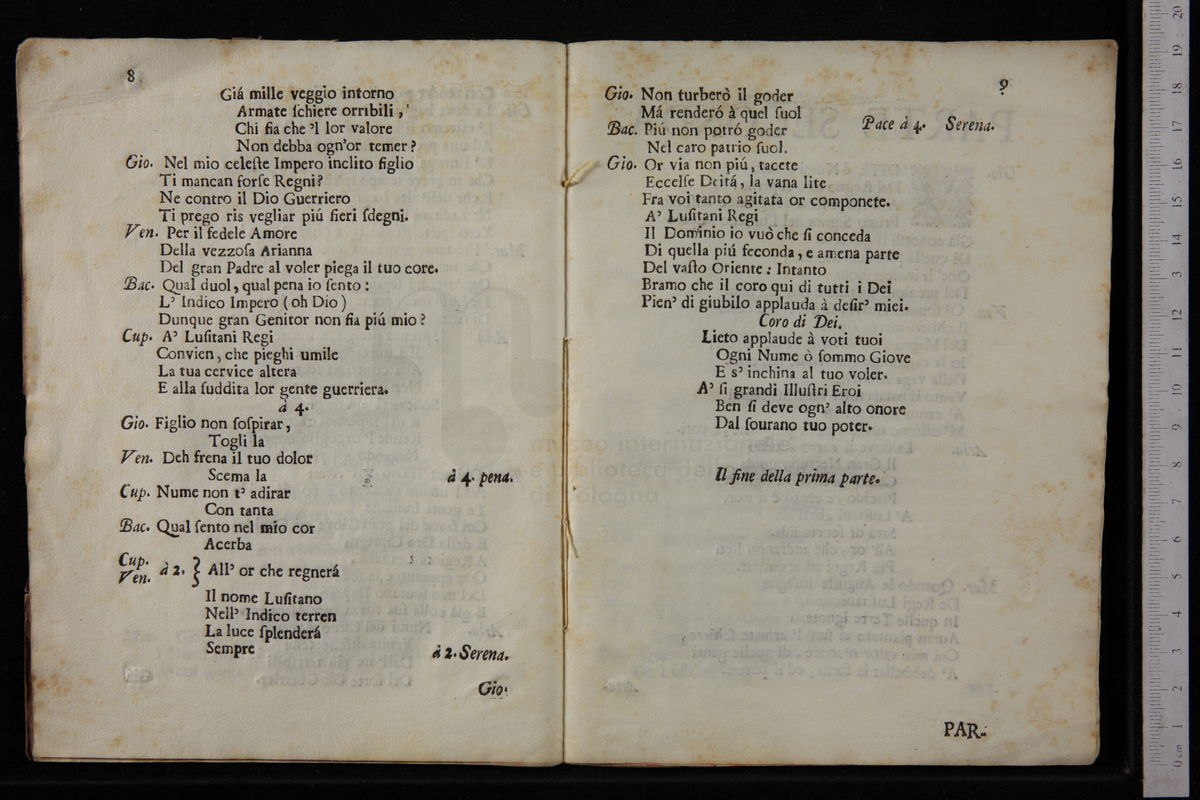 8
Giá mille veggio intorno
Armate ſchiere orribili,
Chi fia che 'l lor valore
Non debba ogn'or temer?
Gio. Nel mio celeſte Impero inclito figlio
Ti mancan forſe Regni?
Ne contro il Dio Guerriero
Ti prego ris vegliar piú fieri ſdegni.
Ven. Per il fedele Amore
Della vezzoſa Arianna
Del gran Padre al voler piega il tuo core.
Bac. Qual duol, qual pena io ſento:
L' Indico Impero (oh Dio)
Dunque gran Genitor non fia piú mio?
Cup. A' Luſitani Regi
Convien, che pieghi umile
La tua cervice altera
E alla ſuddita lor gente guerriera.
à 4.
Gio. Figlio non ſoſpirar,
Togli la
Ven. Deh frena il tuo dolor
Scema la
à 4. pena.
Cup. Nume non t' adirar
Con tanta
Bac. Qual ſento nel mio cor
Acerba
Cup. Ven. à 2. } All' or che regnerá
Il nome Luſitano
Nell' Indico terren
La luce ſplenderá
Sempre
à 2. Serena.
Gio.
9
Gio. Non turberò il goder
Má renderó à quel ſuol
Pace à 4. Serena.
Bac. Piú non potró goder
Nel caro patrio ſuol.
Gio. Or via non piú, tacete
Eccelſe Deitá, la vana lite
Fra voi tanto agitata or componete.
A' Luſitani Regi
Il Dominio io vuò che ſi conceda
Di quella piú feconda, e amena parte
Del vaſto Oriente: Intanto
Bramo che il coro qui di tutti i Dei
Pien' di giubilo applauda à deſir' miei.
Coro di Dei.
Lieto applaude à voti tuoi
Ogni Nume ò ſommo Giove
E s' inchina al tuo voler.
A' ſi grandi Illuſtri Eroi
Ben ſi deve ogn' alto onore
Dal ſourano tuo poter.
Il fine della prima parte.
PAR-